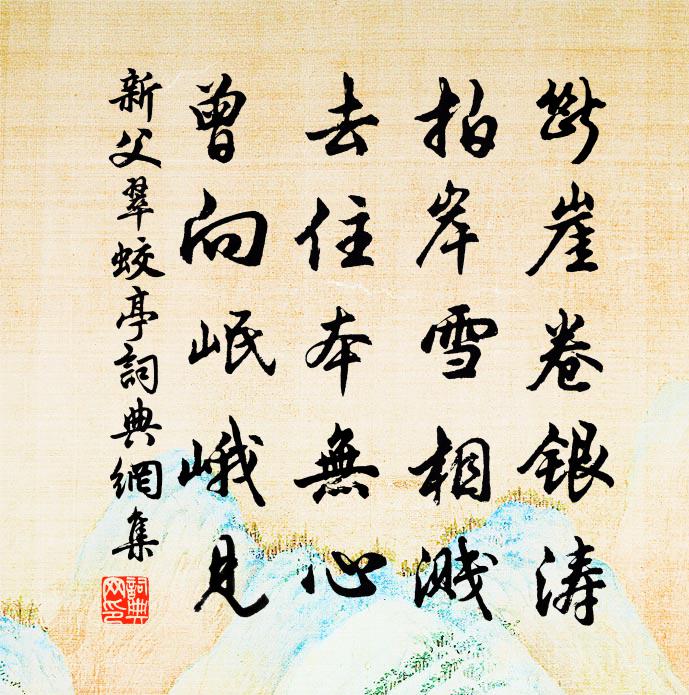 斷崖卷銀濤
拍岸雪相濺
去住本無心
曾向岷峨見
新父翠蛟亭詞典網集
詞典網印